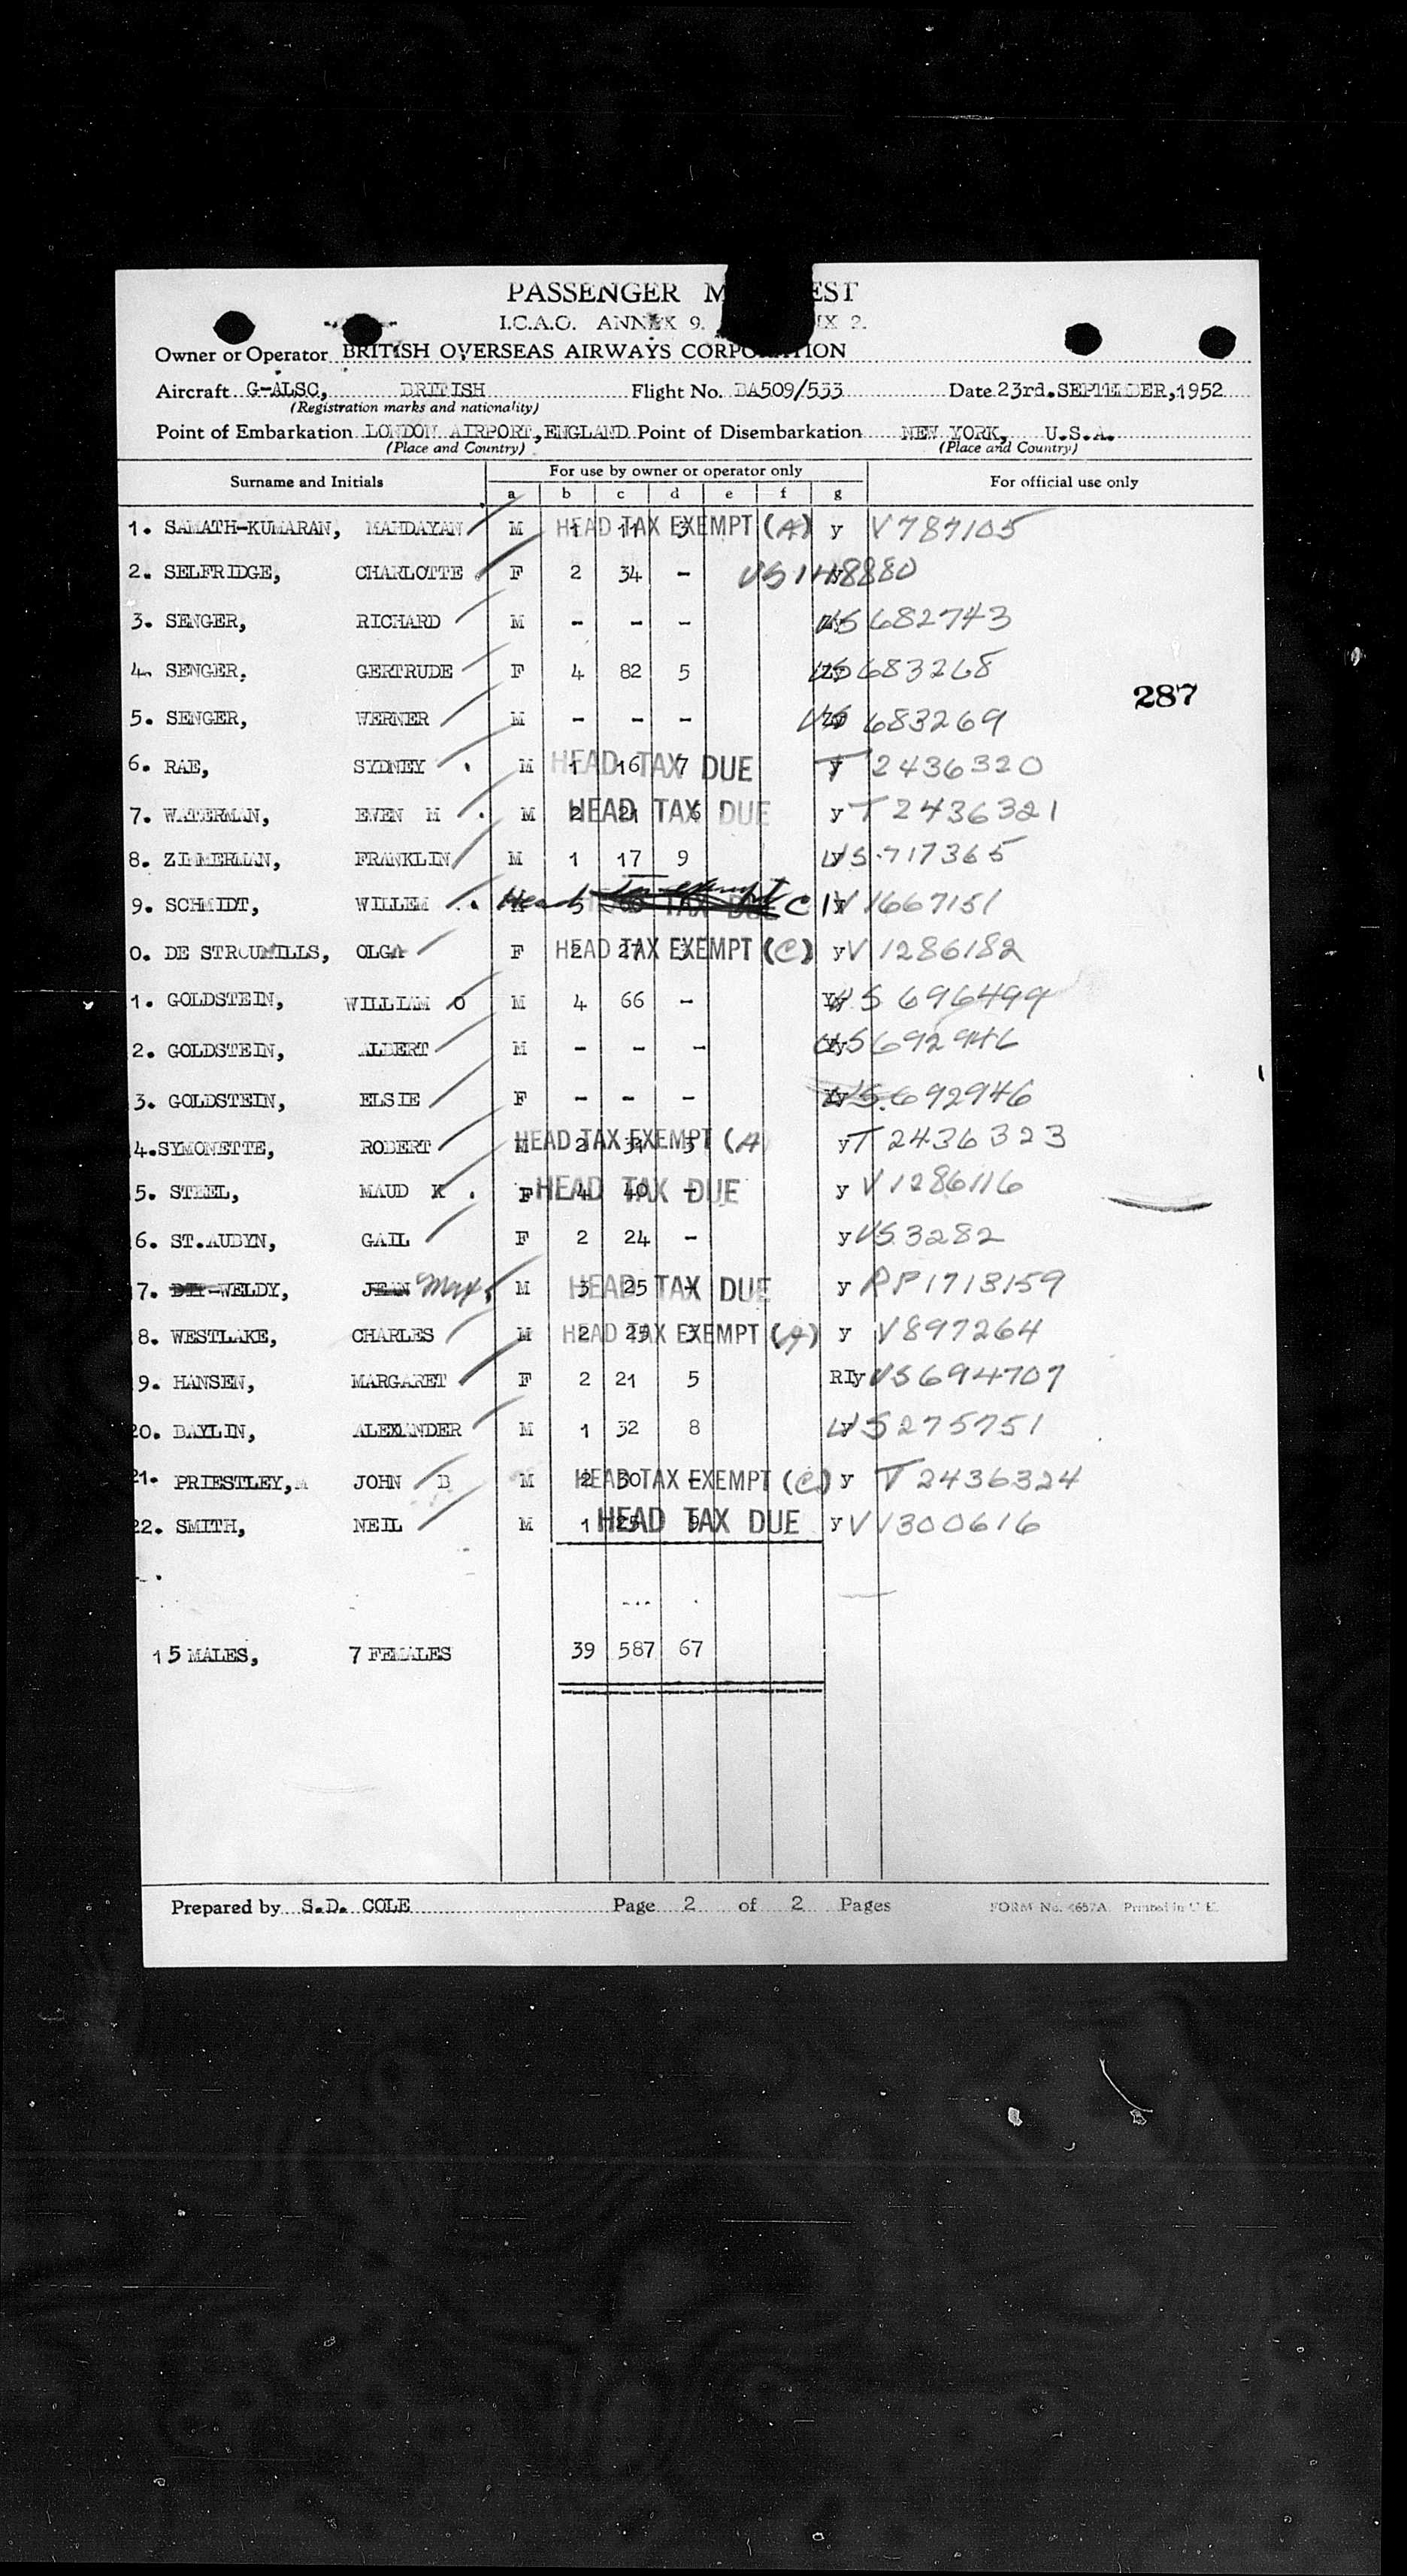 PASSENGER M EST
I.C.A.O. ANNEX 9. IX 2.
Owner or Operator BRITISH OVERSEAS AIRWAYS CORPORATION
Aircraft G-ALSC, BRITISH Flight No. BA509/533 Date 23rd. SEPTEMBER, 1952
(Registration marks and nationality)
Point of Embarkation LONDON AIRPORT, ENGLAND Point of Disembarkation NEW YORK, U.S.A.
(Place and Country) (Place and Country)
Surname and Initials For use by owner or operator only For official use only
a b c d e f g
1. SAMATH-KUMARAN, MAHDAYAN M 1 11 3 HEAD TAX EXEMPT (A) y V787105
2. SELFRIDGE, CHARLOTTE F 2 34 - US 148880
3. SENGER, RICHARD M - - - US 682743
4. SENGER, GERTRUDE F 4 82 5 US 683268
5. SENGER, WERNER M - - - US 683269
6. RAE, SYDNEY M 1 16 7 HEAD TAX DUE y T 2436320
7. WATERMAN, EVEN M M 2 21 6 HEAD TAX DUE y T 2436321
8. ZIMMERMAN, FRANKLIN M 1 17 9 US 717365
9. SCHMIDT, WILLEM M 5 HEAD TAX DUE Head Tax exempt C V 1667151
0. DE STROUMILLS, OLGA F 2 27 3 HEAD TAX EXEMPT (C) y V 1286182
1. GOLDSTEIN, WILLIAM O M 4 66 - US 696499
2. GOLDSTEIN, ALBERT M - - - US 692946
3. GOLDSTEIN, ELSIE F - - - US 692946
4. SYMONETTE, ROBERT M 2 34 3 HEAD TAX EXEMPT (A y T 2436323
5. STEEL, MAUD K F 4 40 - HEAD TAX DUE y V 1286116
6. ST.AUBYN, GAIL F 2 24 - y US 3282
7. -WELDY, JEAN Max M 3 25 - HEAD TAX DUE y PP 1713159
8. WESTLAKE, CHARLES M 2 25 3 HEAD TAX EXEMPT (A) y V897264
9. HANSEN, MARGARET F 2 21 5 RIy US 694707
20. BAYLIN, ALEXANDER M 1 32 8 US 275751
21. PRIESTLEY, JOHN B M 2 30 - HEAD TAX EXEMPT (C) y T 2436324
22. SMITH, NEIL M 1 25 9 HEAD TAX DUE y V 1300616
287
15 MALES, 7 FEMALES 39 587 67
Prepared by S.D. COLE Page 2 of 2 Pages FORM No. 4657A Printed in U.K.